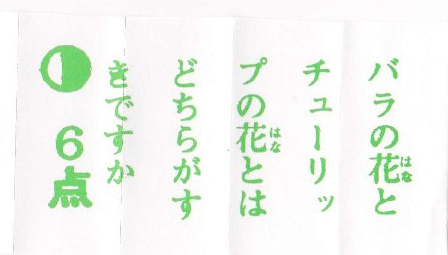 バラの花と
チューリッ
プの花とは
どちらがす
きですか
6点